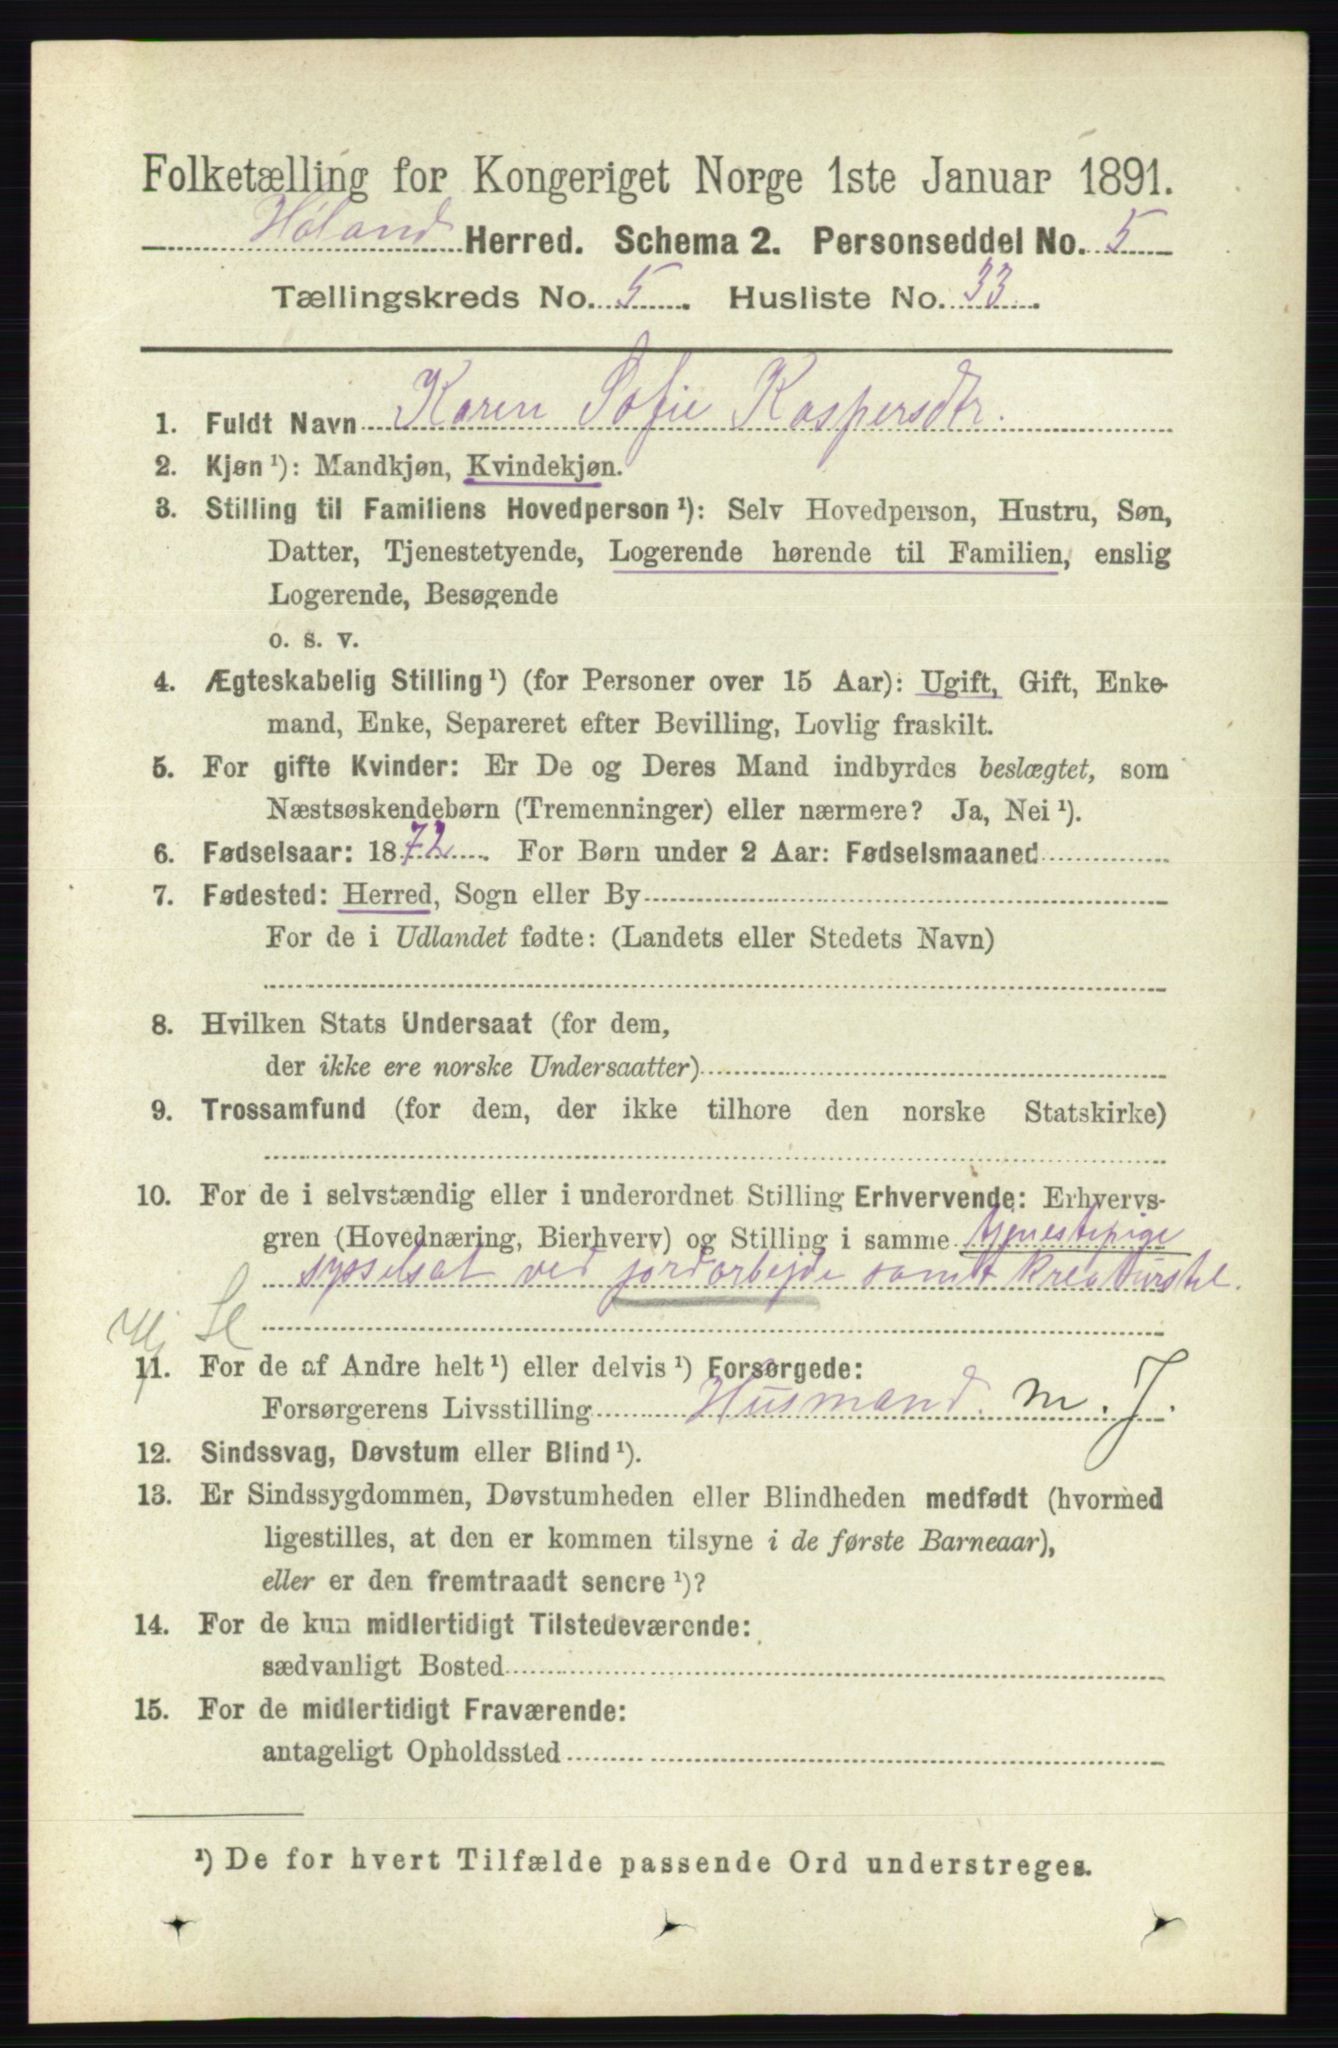 Folketælling for Kongeriget Norge 1ste Januar 1891.
Høland Herred. Schema 2. Personseddel No. 5
Tællingskreds No. 5. Husliste No. 33.
1. Fuldt Navn Karen Sofie Kaspersdtr.
2. Kjøn ¹): Mandkjøn, Kvindekjøn.
3. Stilling til Familiens Hovedperson ¹): Selv Hovedperson, Hustru, Søn,
Datter, Tjenestetyende, Logerende hørende til Familien, enslig
Logerende, Besøgende
o. s. v.
4. Ægteskabelig Stilling ¹) (for Personer over 15 Aar): Ugift, Gift, Enke-
mand, Enke, Separeret efter Bevilling, Lovlig fraskilt.
5. For gifte Kvinder: Er De og Deres Mand indbyrdes beslægtet, som
Næstsøskendebørn (Tremenninger) eller nærmere? Ja, Nei ¹).
6. Fødselsaar: 1872. For Børn under 2 Aar: Fødselsmaaned
7. Fødested: Herred, Sogn eller By
For de i Udlandet fødte: (Landets eller Stedets Navn)
8. Hvilken Stats Undersaat (for dem,
der ikke ere norske Undersaatter)
9. Trossamfund (for dem, der ikke tilhøre den norske Statskirke)
10. For de i selvstændig eller i underordnet Stilling Erhvervende: Erhvervs-
gren (Hovednæring, Bierhverv) og Stilling i samme tjenestepige
sysselsat ved jordarbejde samt kreaturstel.
11. For de af Andre helt ¹) eller delvis ¹) Forsørgede:
Forsørgerens Livsstilling Husmand. m. J.
12. Sindssvag, Døvstum eller Blind ¹).
13. Er Sindssygdommen, Døvstumheden eller Blindheden medfødt (hvormed
ligestilles, at den er kommen tilsyne i de første Barneaar),
eller er den fremtraadt senere ¹)?
14. For de kun midlertidigt Tilstedeværende:
sædvanligt Bosted
15. For de midlertidigt Fraværende:
antageligt Opholdssted
¹) De for hvert Tilfælde passende Ord understreges.